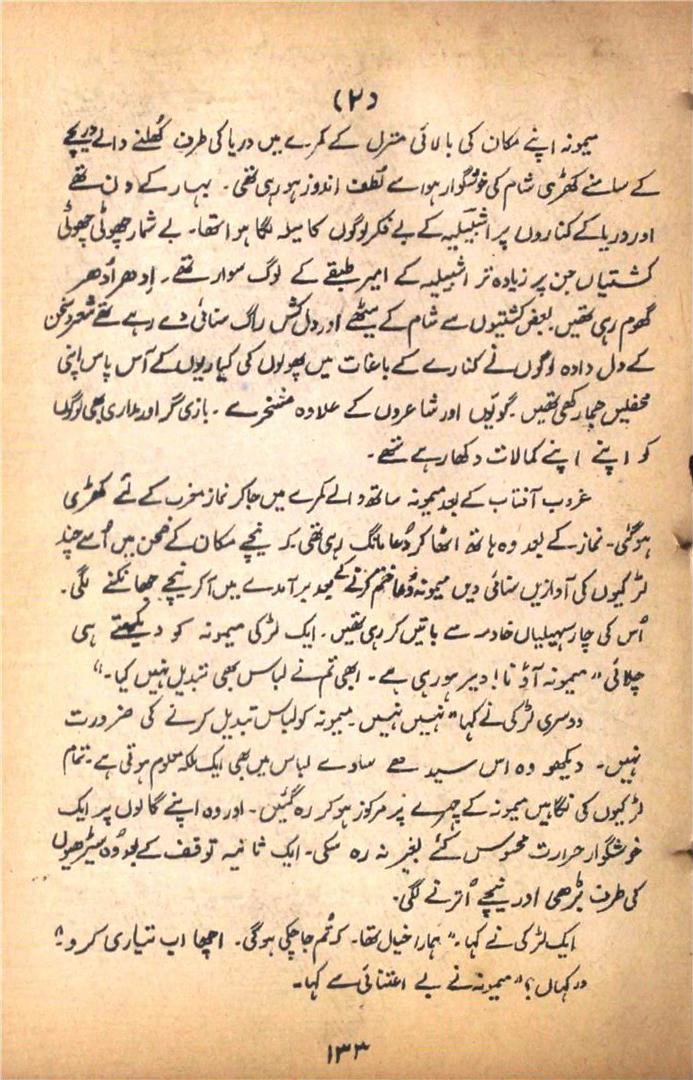 (۲)
میمونہ اپنے مکان کی بالائی منزل کے کمرے میں دریا کی طرف کھلنے والے دریچے
کے سامنے کھڑی شام کی خوشگوار ہوا سے لُطف اندوز ہو رہی تھی۔ بہار کے دن تھے
اور دریا کے کناروں پر اشبیلیہ کے بے فکر لوگوں کا میلہ لگا ہوا تھا۔ بے شمار چھوٹی چھوٹی
کشتیاں جن پر زیادہ تر اشبیلیہ کے امیر طبقے کے لوگ سوار تھے۔ اِدھر اُدھر
گھوم رہی تھیں۔ بعض کشتیوں سے شام کے میٹھے اور دل کش راگ سنائی دے رہے تھے شعر و سخن
کے دل دادہ لوگوں نے کنارے کے باغات میں پھولوں کی کیاریوں کے آس پاس اپنی
محفلیں جما رکھی تھیں۔ گویّوں اور شاعروں کے علاوہ مسخرے۔ بازی گر اور مداری بھی لوگوں
کو اپنے اپنے کمالات دکھا رہے تھے۔
غروب آفتاب کے بعد میمونہ ساتھ والے کمرے میں جا کر نماز مغرب کے لئے کھڑی
ہو گئی۔ نماز کے بعد وہ ہاتھ اٹھا کر دُعا مانگ رہی تھی کہ نیچے مکان کے صحن میں اُسے چند
لڑکیوں کی آوازیں سنائی دیں میمونہ دُعا ختم کرنے کے بعد برآمدے میں آ کر نیچے جھانکنے لگی۔
اُس کی چار سہیلیاں خادمہ سے باتیں کر رہی تھیں۔ ایک لڑکی میمونہ کو دیکھتے ہی
چلائی "میمونہ آؤ نا! دیر ہو رہی ہے۔ ابھی تم نے لباس بھی تبدیل نہیں کیا۔"
دوسری لڑکی نے کہا "نہیں نہیں۔ میمونہ کو لباس تبدیل کرنے کی ضرورت
نہیں۔ دیکھو وہ اس سیدھے سادے لباس میں بھی ایک ملکہ معلوم ہوتی ہے۔ تمام
لڑکیوں کی نگاہیں میمونہ کے چہرے پر مرکوز ہو کر رہ گئیں۔ اور وہ اپنے گالوں پر ایک
خوشگوار حرارت محسوس کئے بغیر نہ رہ سکی۔ ایک ثانیہ توقف کے بعد وُہ سیڑھیوں
کی طرف بڑھی اور نیچے اُترنے لگی۔
ایک لڑکی نے کہا۔ "ہمارا خیال تھا۔ کہ تُم جا چکی ہو گی۔ اچھا اب تیاری کرو۔"
"کہاں؟" میمونہ نے بے اعتنائی سے کہا۔
۱۳۳